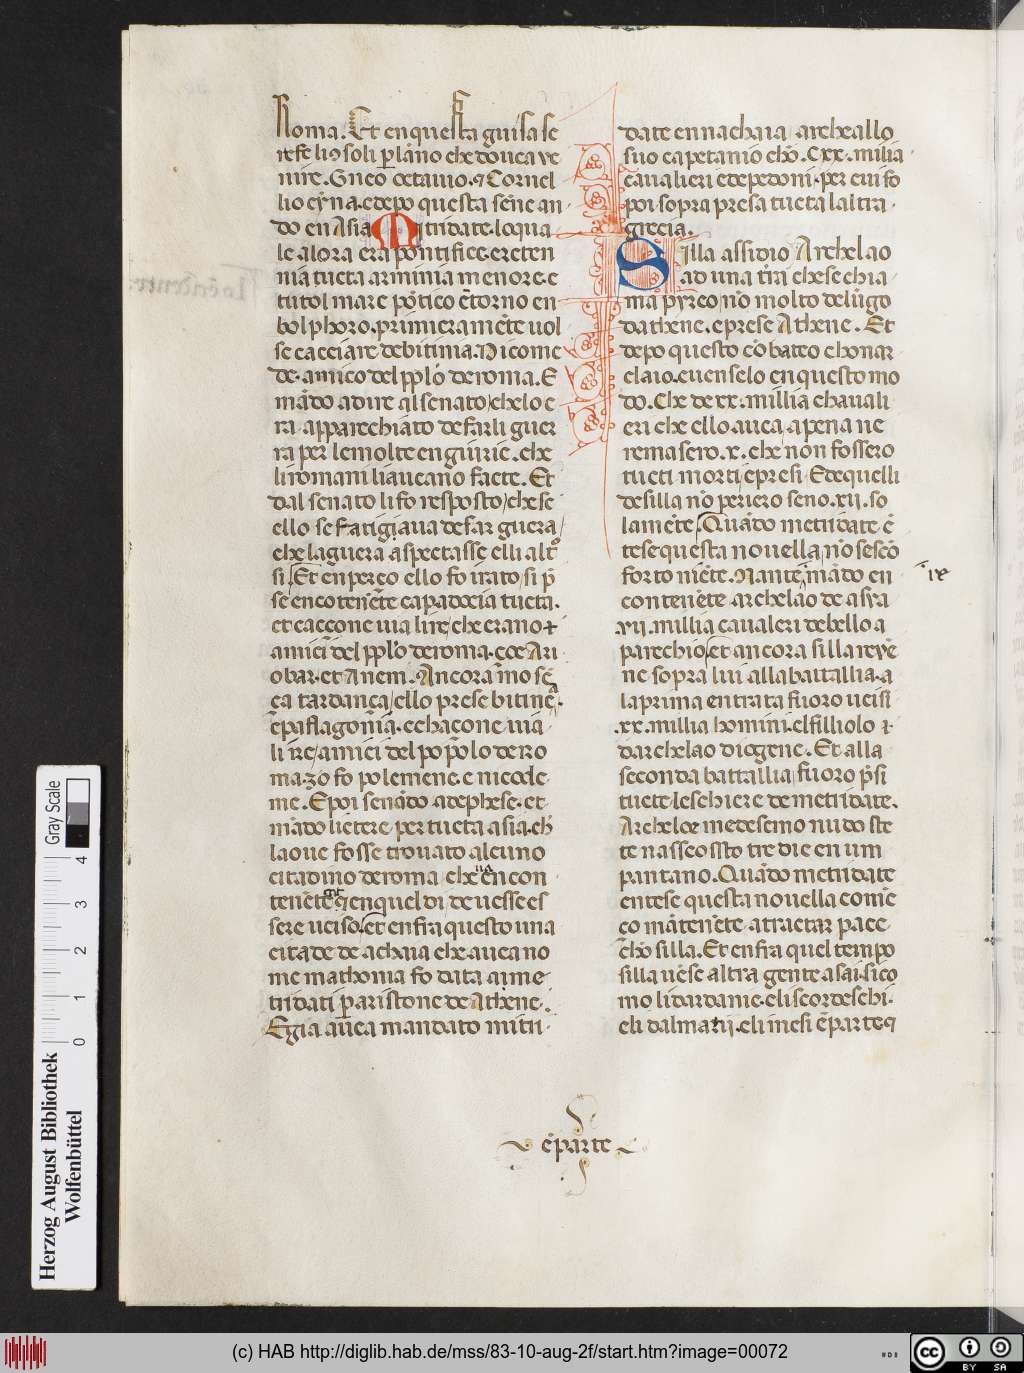 Roma. Et en questa guisa se
refe li ꝯsoli p̱ làno che douea ve
nire. Gneo octauio. ⁊ Cornel
lio cyna. e depo questa sene an
do en Asia Mitridate. lo qua
le alora era pontifice. e reten
nia tucta arminia menore. e
tucto l mare pōtico ētorno en
bolphoro. primieramēte uol
se cacciare de bitinia. Nicome
de. amico del pplo de roma. E
mādo a dire al senato che lo e
ra apparechiato de farli guer
ra per le molte engiurie. che
li romani li aueano facte. Et
dal senato li fo resposto che se
ello se fatigiaua de far guera
che la guera aspectasse elli altr̄
si. Et en perço ello fo irato si p̄
se encotenēte capadocia tucta.
et caccone uia li re che erano
amici del pplo de roma. çoe Ari
obar. et Anem. Ancora īmo sē
ça tardança ello prese bitinēa.
ēpaflagonia. e chacone uia
li re amici del popolo de ro
ma. zo fo polemene. e nicode
me. E poi senādo ad ephese. et
mādo lictere per tucta asia. ch̄
la oue fosse trouato alcuno
citadino de roma che ēn con
tenēte ⁊ en quel di deuesse es
sere ucciso. et enfra questo una
citade de achaia che auea no
me mathonia fo data a me
tridati p̱ aristone de Athene.
E gia auea mandato mitri
date en nachaia archeallo
suo capetanio chō. Cxx. milia
caualieri e de pedoni. per cui fo
poi sopra presa tucta l altra
grecia.
Silla assidio Archelao
ad una t̄ra che se chia
ma pyreo nō molto de lūgo
da thene. e prese Athene. Et
depo questo cōbateo chon ar
claio. e uenselo en questo mo
do. Che de xx. millia chauali
eri che ello auea apena ne
remasero. x. che non fossero
tucti morti e presi. E de quelli
de silla nō periero seno. xii. so
lamēte. Quādo metridate ē
tese questa nouella nō se scō
forto niēte. Nante mādo en
contenēte archelao de asya
xii. millia caualeri de bello a
parechio. et ancora silla reuē
ne sopra lui alla battallia. a
la prima entrata fuoro ucisi
.xx. millia homini. el filliolo
d archelao diogene. Et alla
seconda battallia fuoro p̄si
tucte le schiere de metridate.
Archeloe medesemo nudo ste
te nasscossto tre die en um
pantano. Quādo metridate
entese questa nouella comē
ço mātenēte a tractar pace
chō silla. Et enfra quel tempo
silla uēse altra gente asai sico
mo li dardanie. e li scordeschi.
e li dalmatij. e li mesi ēparte ꝗ
ēparte
Herzog August Bibliothek
Wolfenbüttel
Gray Scale
0 1 2 3 4
(c) HAB http://diglib.hab.de/mss/83-10-aug-2f/start.htm?image=00072
cc BY SA